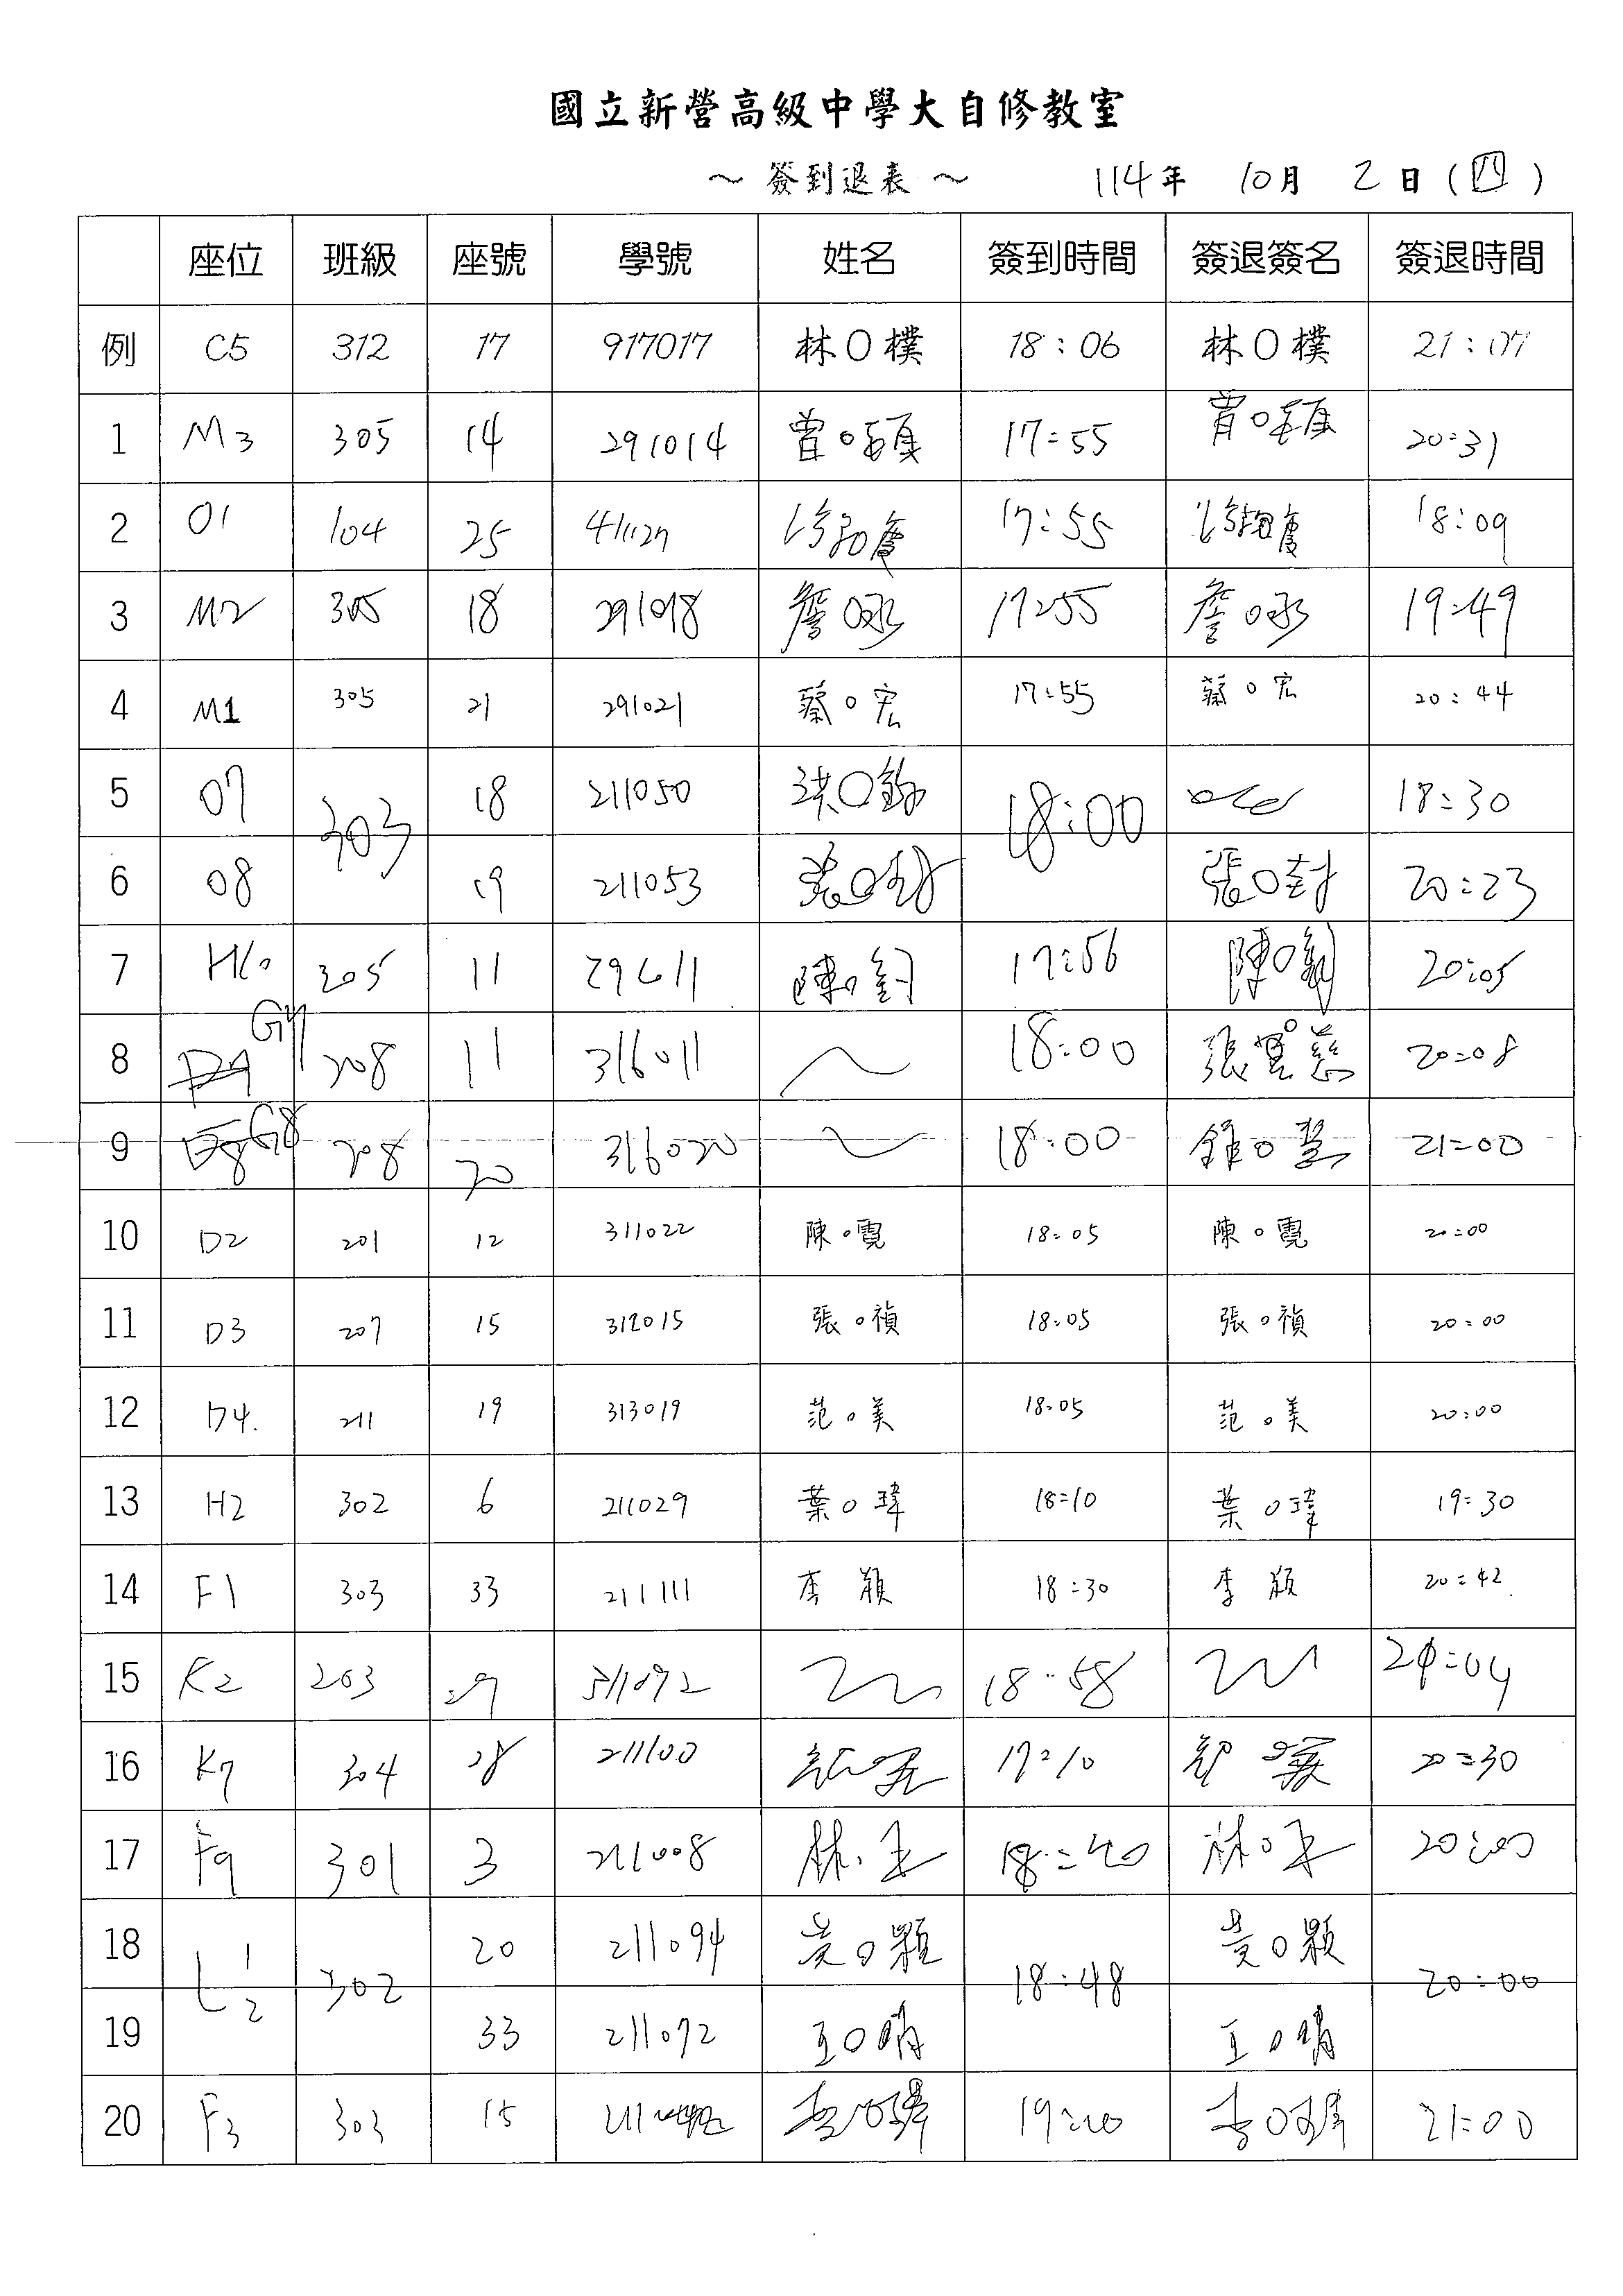 國立新營高級中學大自修教室
～ 簽到退表 ～ 114年 10月 2日(四)
座位 班級 座號 學號 姓名 簽到時間 簽退簽名 簽退時間
例 C5 312 17 917017 林O樸 18:06 林O樸 21:07
1 M3 305 14 291014 曾O 17:55 曾O 20:31
2 O1 104 25 17:55 18:09
3 M2 305 18 291018 詹O 17:55 詹O 19:49
4 M1 305 21 291021 蔡O宏 17:55 蔡O宏 20:44
5 07 303 18 211050 洪O鈞 18:00 18:30
6 08 19 211053 張O封 張O封 20:23
7 H10 305 11 陳O 17:56 陳O 20:05
8 G7 208 11 316011 18:00 張 慈 20:08
9 G8 208 20 316020 18:00 鍾O慧 21:00
10 D2 201 12 311022 陳O霓 18:05 陳O霓 20:00
11 D3 207 15 312015 張O禎 18:05 張O禎 20:00
12 D4. 211 19 313019 范O美 18:05 范O美 20:00
13 H2 302 6 211029 葉O瑋 18:10 葉O瑋 19:30
14 F1 303 33 211111 李 穎 18:30 李 穎 20:42
15 K2 203 29 311092 18:58
16 K7 304 28 211100 17:10 20:30
17 F9 301 3 211008 林O 18:40 林O 20:00
18 L1 302 20 211094 黃O顆 18:48 黃O顆 20:00
19 2 33 211072 王O晴 王O晴
20 F3 303 15 李O 李O 21:00